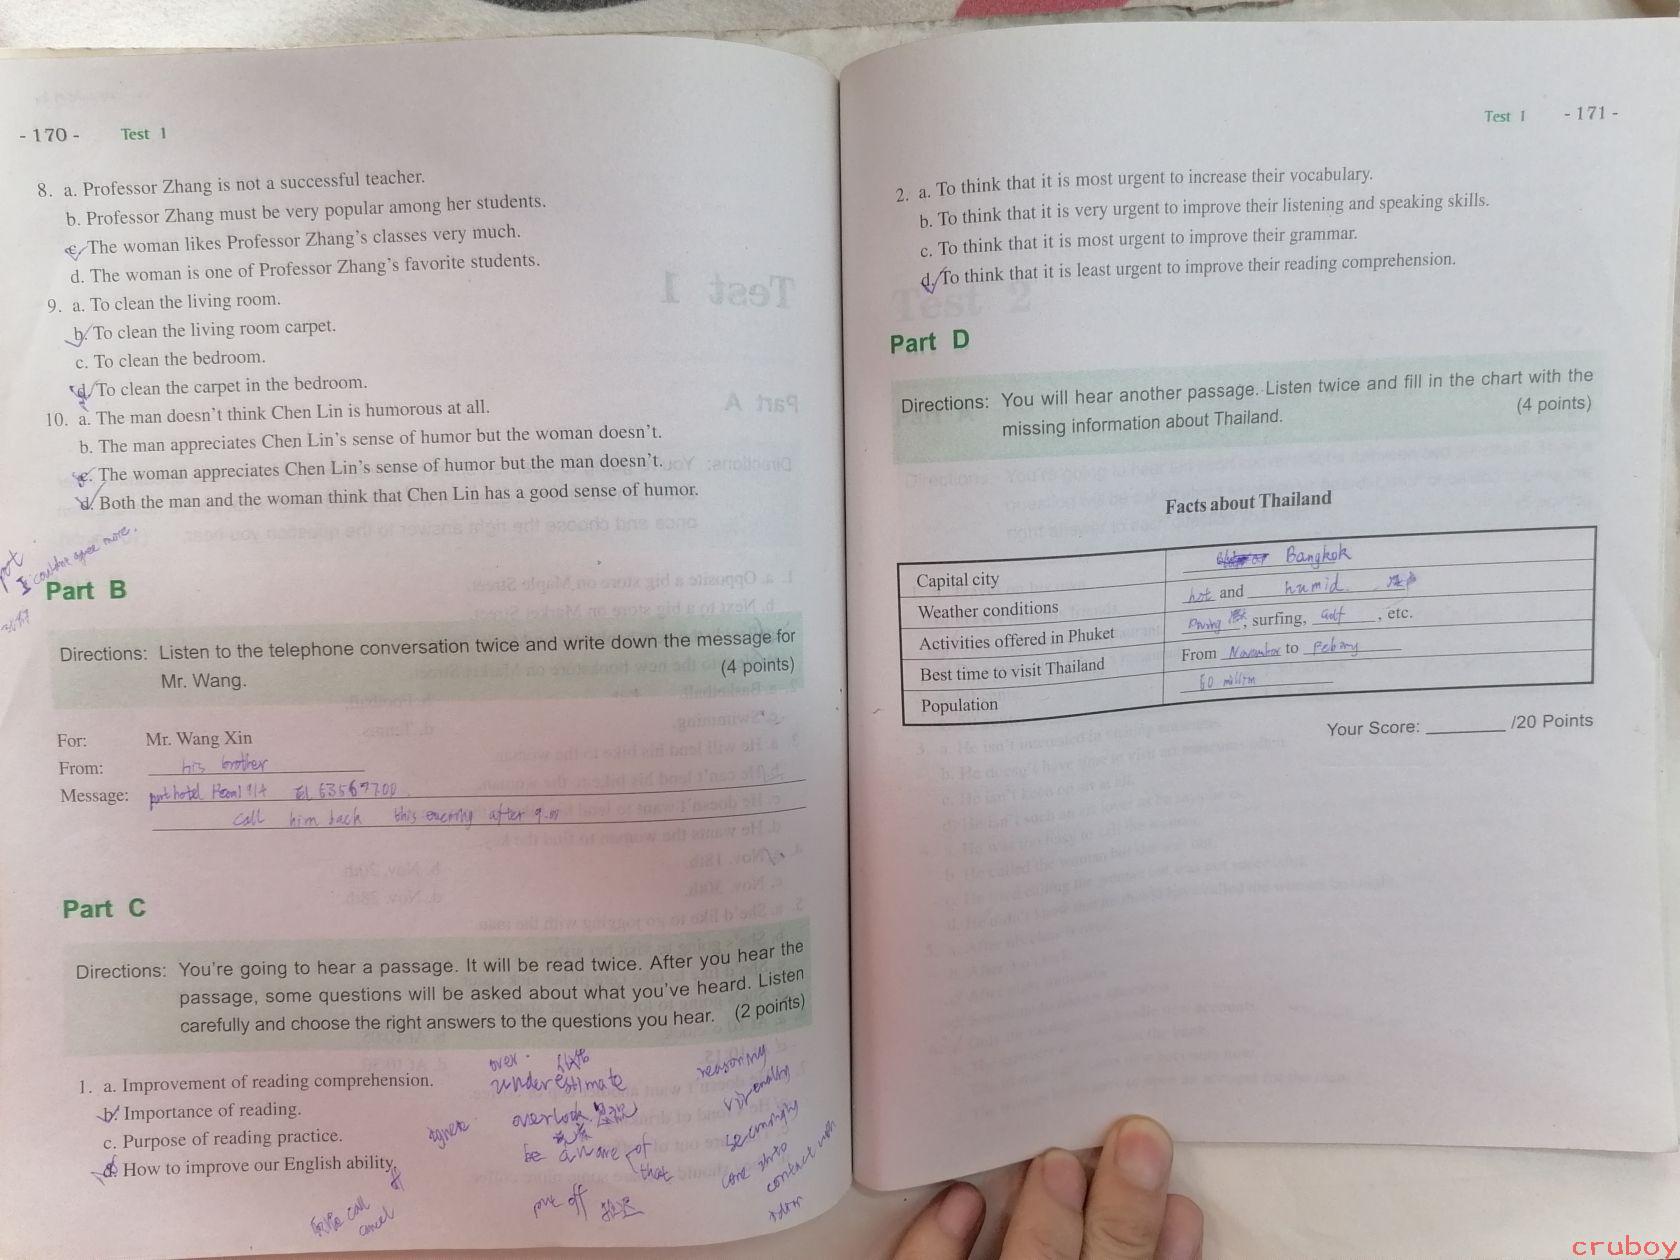 - 170 - Test 1
8. a. Professor Zhang is not a successful teacher.
b. Professor Zhang must be very popular among her students.
c. The woman likes Professor Zhang's classes very much.
d. The woman is one of Professor Zhang's favorite students.
9. a. To clean the living room.
b. To clean the living room carpet.
c. To clean the bedroom.
d. To clean the carpet in the bedroom.
10. a. The man doesn't think Chen Lin is humorous at all.
b. The man appreciates Chen Lin's sense of humor but the woman doesn't.
c. The woman appreciates Chen Lin's sense of humor but the man doesn't.
d. Both the man and the woman think that Chen Lin has a good sense of humor.
agree more.
Part B
Directions: Listen to the telephone conversation twice and write down the message for
Mr. Wang. (4 points)
For: Mr. Wang Xin
From: his brother
Message: hotel 63569700
call him back this evening after
Part C
Directions: You're going to hear a passage. It will be read twice. After you hear the
passage, some questions will be asked about what you've heard. Listen
carefully and choose the right answers to the questions you hear. (2 points)
1. a. Improvement of reading comprehension.
b. Importance of reading.
c. Purpose of reading practice.
d. How to improve our English ability.
over
underestimate
overlook
be aware of
that
put off
call
cancel
reasoning
seemingly
contact with
Test 1 - 171 -
2. a. To think that it is most urgent to increase their vocabulary.
b. To think that it is very urgent to improve their listening and speaking skills.
c. To think that it is most urgent to improve their grammar.
d. To think that it is least urgent to improve their reading comprehension.
Part D
Directions: You will hear another passage. Listen twice and fill in the chart with the
missing information about Thailand. (4 points)
Facts about Thailand
Capital city Bangkok
Weather conditions hot and humid
Activities offered in Phuket Diving, surfing, Golf, etc.
Best time to visit Thailand From November to
Population 60 million
Your Score: /20 Points
cruboy